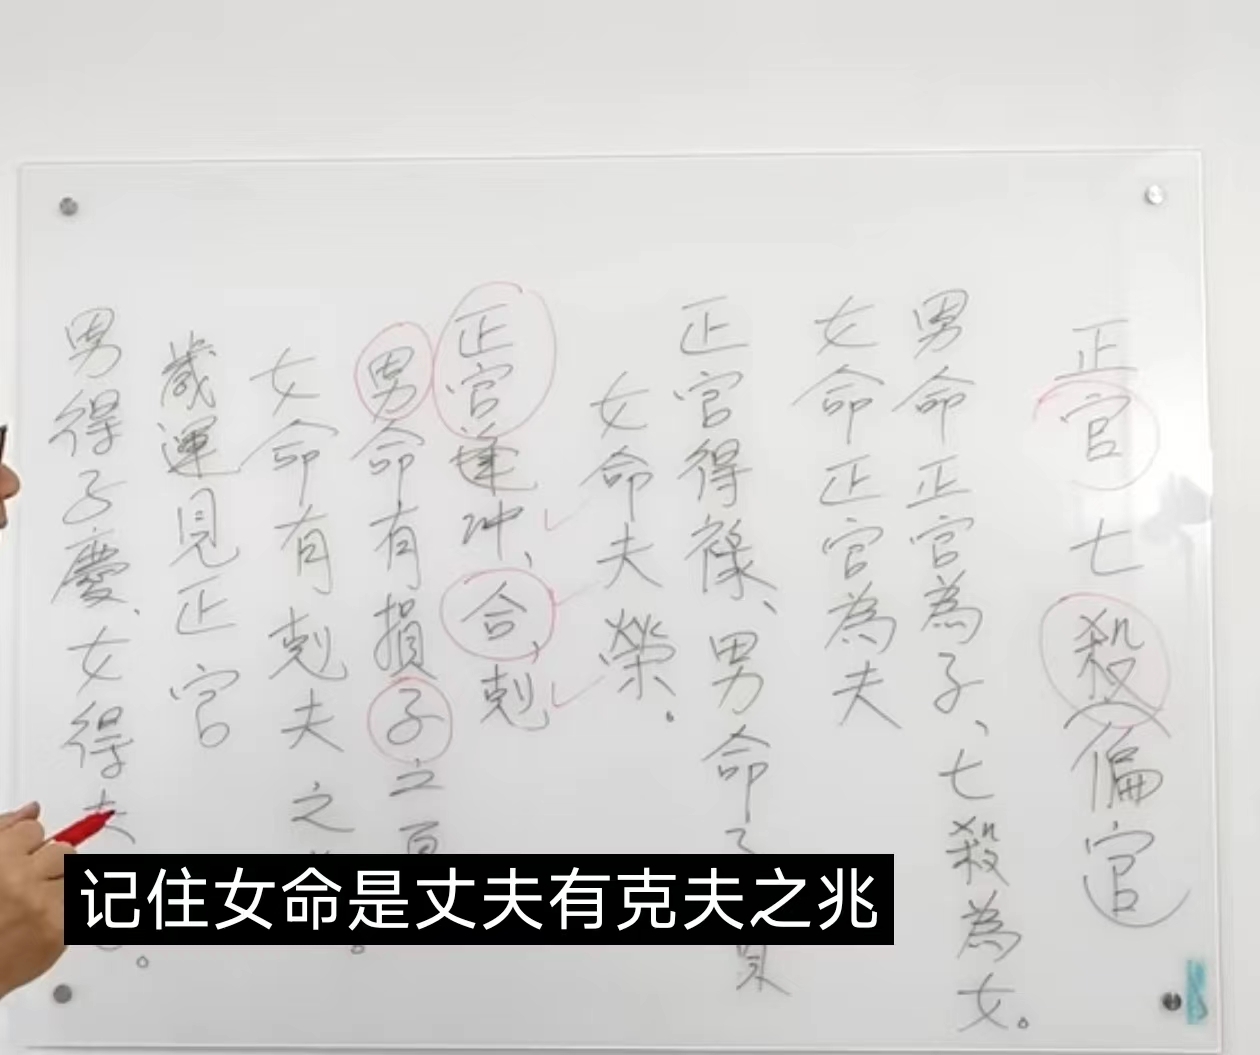 正官七殺(偏官)
男命正官為子、七殺為女。
女命正官為夫
正官得祿、男命子
女命夫榮.
正官逢冲、合、剋
男命有損子之
女命有剋夫之
歲運見正官
男得子慶、女得夫
记住女命是丈夫有克夫之兆